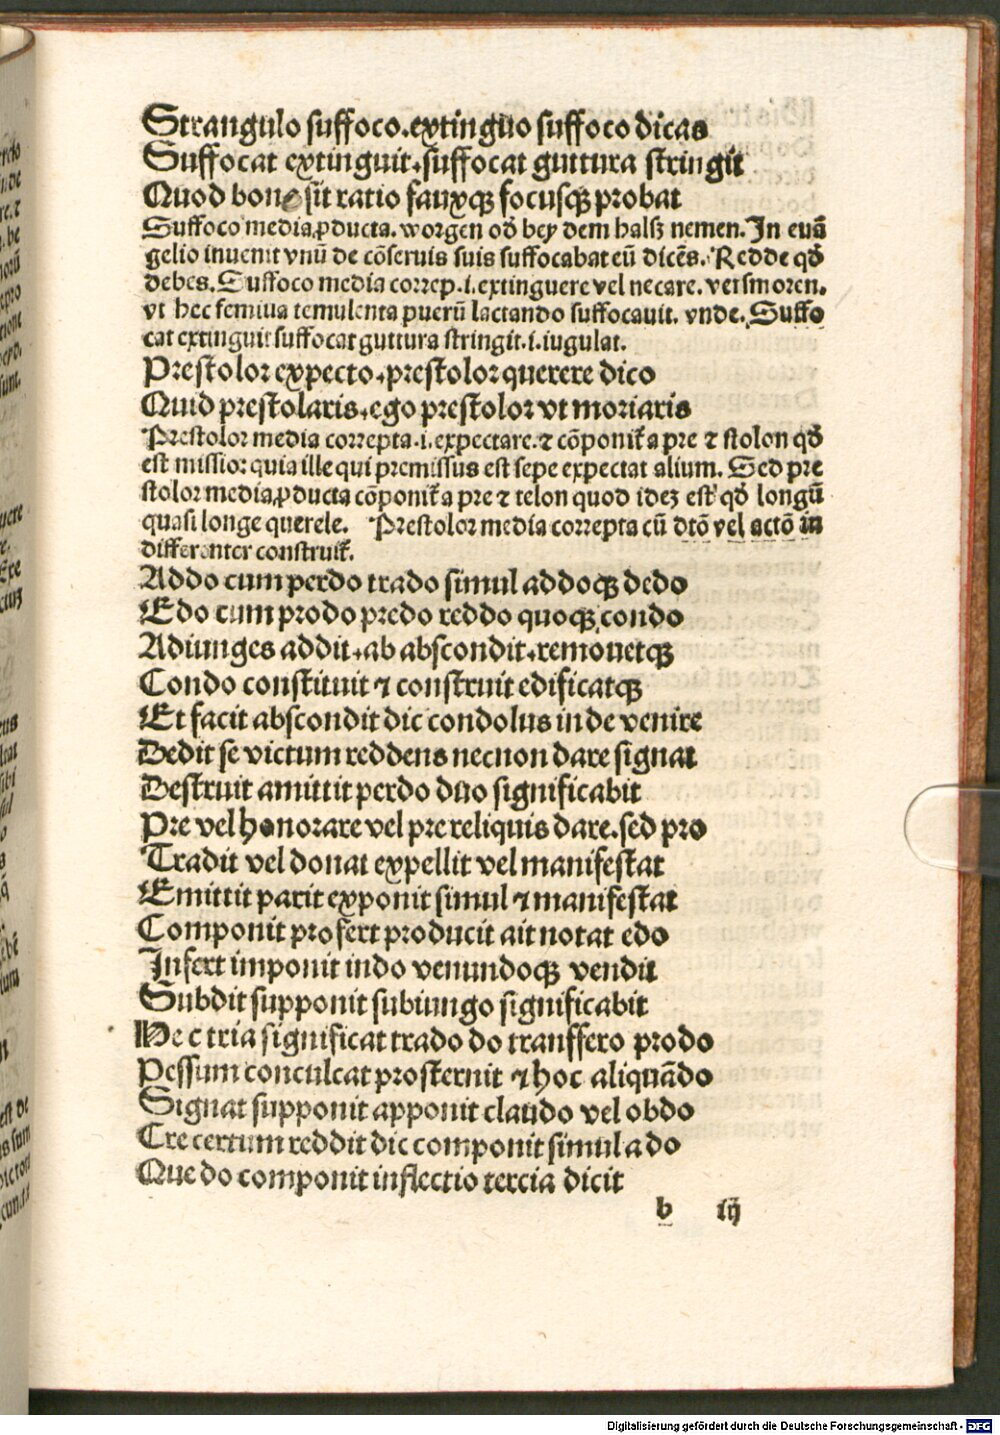 Strangulo suffoco.extinguo suffoco dicas
Suffocat extinguit.suffocat guttura stringit
Quod bone sit ratio fauxqꝫ focusqꝫ probat
Suffoco media ꝓducta. worgen od̕ bey dem halsz nemen. In euā
gelio inuenit vnū de cōseruis suis suffocabat eū dicēs. Redde qd̕
debes. Suffoco media correp.i.extinguere vel necare. versmoren.
vt hec femina temulenta pueru lactando suffocauit. vnde. Suffo
cat extinguit suffocat guttura stringit.i.iugulat.
Prestolor expecto.prestolor querere dico
Quid prestolaris.ego prestolor vt moriaris
Prestolor media correpta.i.expectare.⁊ cōponit̃ a pre ⁊ stolon qd̕
est missio: quia ille qui premissus est sepe expectat alium. Sed pre
stolor media ꝓducta cōponit̃ a pre ⁊ telon quod ideꝫ est qd̕ longū
quasi longe querele. Prestolor media correpta cū dtō vel actō in
differenter construit̃.
Addo cum perdo trado simul addoqꝫ dedo
Edo cum prodo predo reddo quoqꝫ condo
Adiunges addit.ab abscondit.remouetqꝫ
Condo constituit ⁊ construit edificatqꝫ
Et facit abscondit dic condolus inde venire
Dedit se victum reddens necnon dare signat
Destruit amittit perdo duo significabit
Pre vel honorare vel pre reliquis dare.sed pro
Tradit vel donat expellit vel manifestat
Emittit parit exponit simul ⁊ manifestat
Componit profert producit ait notat edo
Infert imponit indo venundoqꝫ vendit
Subdit supponit subiungo significabit
Hec tria significat trado do transfero prodo
Pessum conculcat prosternit ⁊ hoc aliquādo
Signat supponit apponit claudo vel obdo
Cre certum reddit dic componit simul a do
Que do componit inflectio tercia dicit
b iij
Digitalisierung gefördert durch die Deutsche Forschungsgemeinschaft - DFG